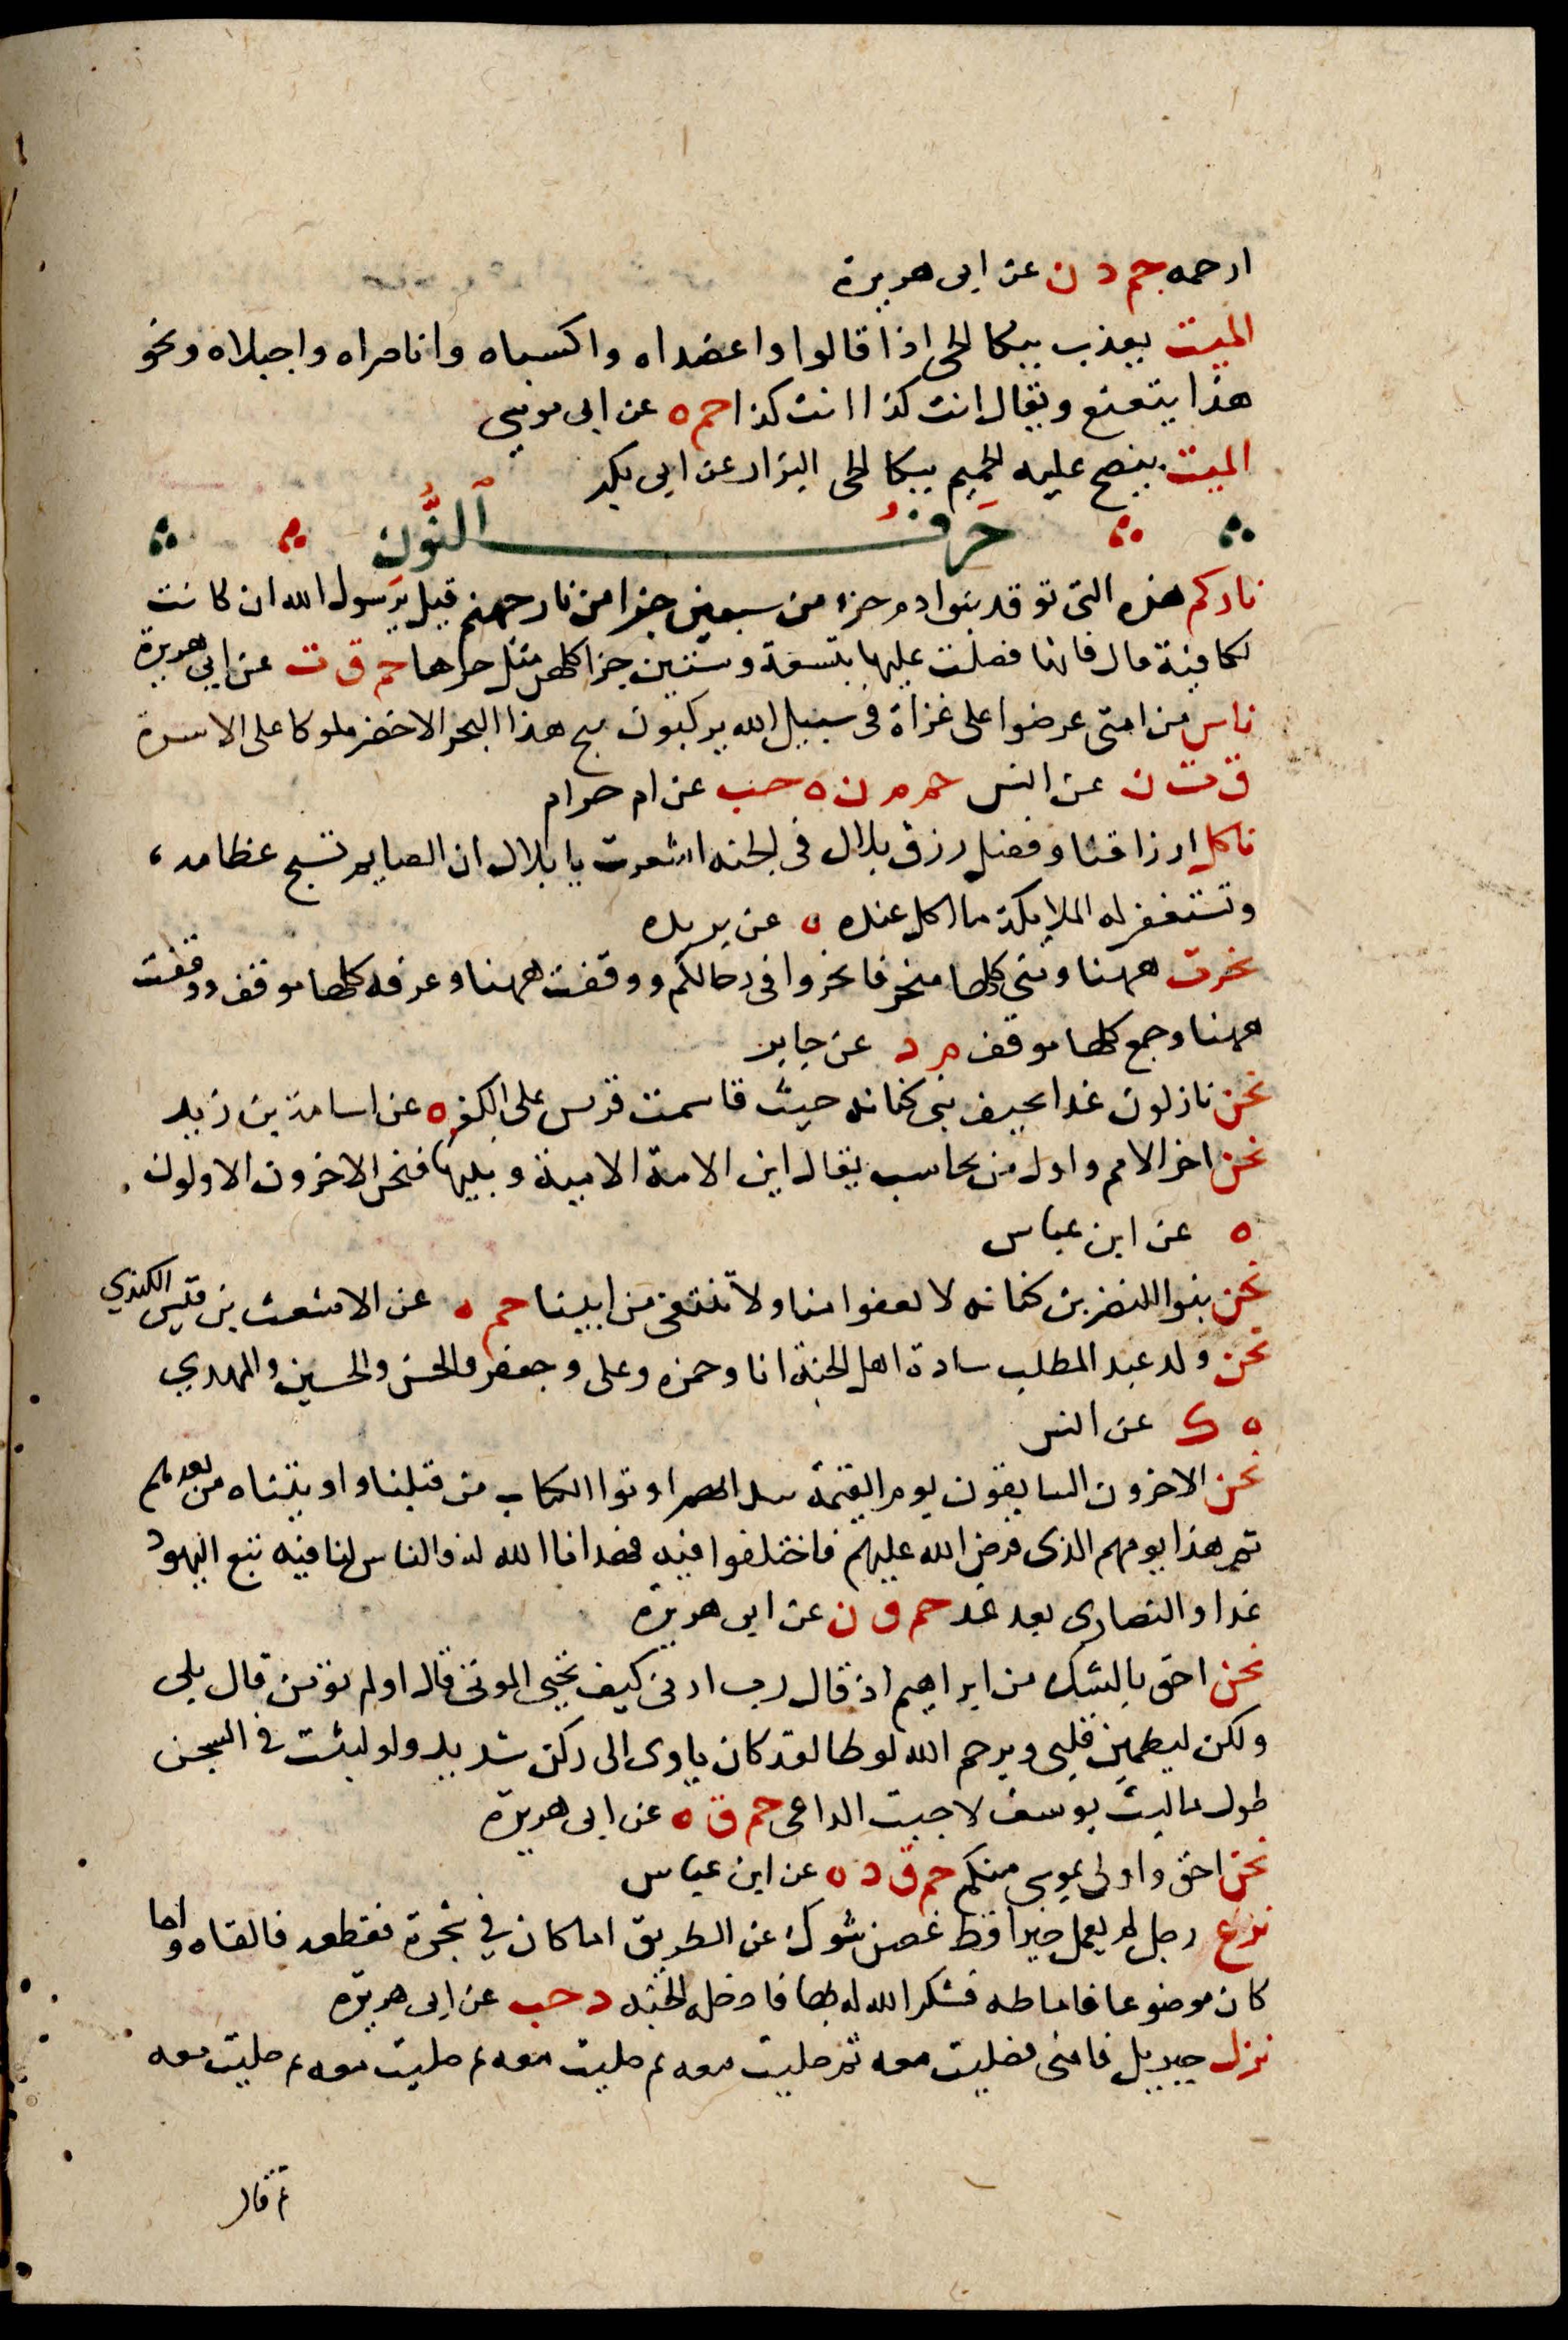 ارحمه حم د ن عن ابى هريرة
الميت يعذب ببكا الحى اذا قالوا واعضداه واكسباه واناصراه واجبلاه ونحو
هذا يتعتع ويقال انت كذا انت كذا حم ه عن ابى موسى
الميت ينضح عليه الحميم ببكا الحى البزار عن ابى بكر
حَرفُ ٱلنُّون
ناركم هذه التى توقد بنوا ادم جزء من سبعين جزا من نار جهنم قيل يرسول الله ان كانت
لكافية قال فانها فضلت عليها بتسعة وستين جزا كلهن مثل حرها حم ق ت عن ابى هريرة
ناس من امتى عرضوا على غزاة فى سبيل الله يركبون ثبج هذا البحر الاخضر ملوكا على الاسرة
ق ت ن عن انس حم م ن ه حب عن ام حرام
ناكل ارزاقنا وفضل رزق بلال فى الجنه اشعرت يا بلال ان الصايم تسبح عظامه
وتستغفر له الملايكة ما اكل عنده ه عن بريده
نحرت ههنا ومنى كلها منحر فانحروا فى رحالكم ووقفت ههنا وعرفه كلها موقف ووقفت
ههنا وجمع كلها موقف م د عن جابر
نحن نازلون غدا بخيف بنى كنانه حيث قاسمت قريس على الكفر ه عن اسامة بن زيد
نحن اخر الامم واول من يحاسب يقال اين الامة الامية ونبيها فنحن الاخرون الاولون
ه عن ابن عباس
نحن بنوا النضر بن كنانه لا نقفوا امنا ولا ننتفى من ابينا حم ه عن الاشعث بن قيس الكندي
نحن ولد عبد المطلب سادة اهل الجنة انا وحمزه وعلى وجعفر والحسن والحسين والمهدي
ه ك عن انس
نحن الاخرون السابقون يوم القيمة بيد انهم اوتوا الكتاب من قبلنا واوتيناه من بعدهم
ثم هذا يومهم الذى فرض الله عليهم فاختلفوا فيه فهدانا الله له فالناس لنا فيه تبع اليهود
غدا والنصارى بعد غد حم ق ن عن ابى هريرة
نحن احق بالشك من ابراهيم اذ قال رب ارنى كيف تحيى الموتى قال اولم تؤمن قال بلى
ولكن ليطمين قلبى ويرحم الله لوطا لقد كان ياوى الى ركن شديد ولو لبثت فى السجن
طول ما لبث يوسف لاجبت الداعى حم ق ه عن ابى هريرة
نحن احق واولى بموسى منكم حم ق د ه عن ابن عباس
نزع رجل لم يعمل خيرا قط غصن شوك عن الطريق اما كان في شجرة فقطعه فالقاه واما
كان موضوعا فاماطه فشكر الله له بها فادخله الجنه د حب عن ابى هريرة
نزل جبريل فامنى فصليت معه ثم صليت معه ثم صليت معه ثم صليت معه ثم صليت معه
ثم قال